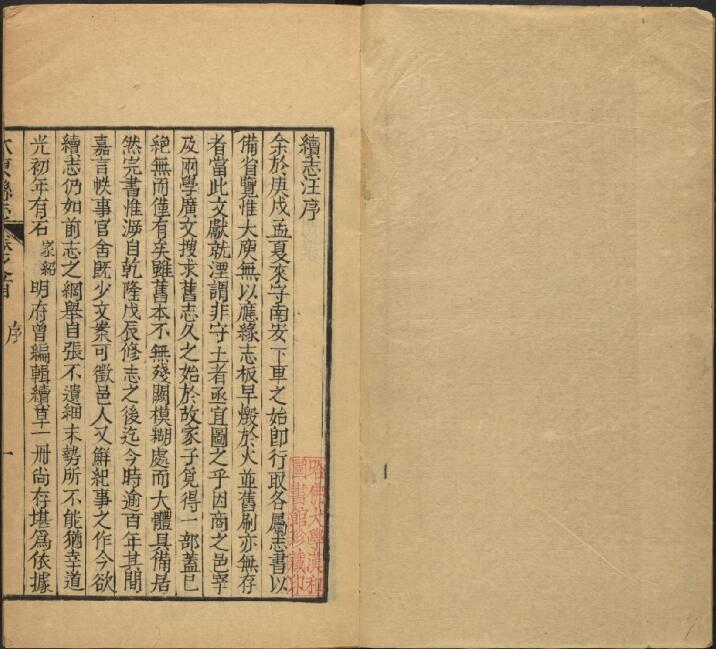 續志汪序
余於庚戌孟夏來守南安下車之始即行取各屬志書以
備省覽惟大庾無以應緣志板早燬於火並舊刷亦無存
者當此文獻就湮謂非守土者亟宜圖之乎因商之邑宰
及兩學廣文搜求舊志久之始於故家子覓得一部蓋已
絶無而僅有矣雖舊本不無殘闕模糊處而大體具備居
然完書惟溯自乾隆戊辰修志之後迄今時逾百年其間
嘉言軼事官舍既少文案可徵邑人又鮮紀事之作今欲
續志仍如前志之綱舉目張不遺細末勢所不能猶幸道
光初年有石家紹明府曾編輯續草一冊尚存堪為依據
序
一
哈佛大學漢和
圖書館珍藏印